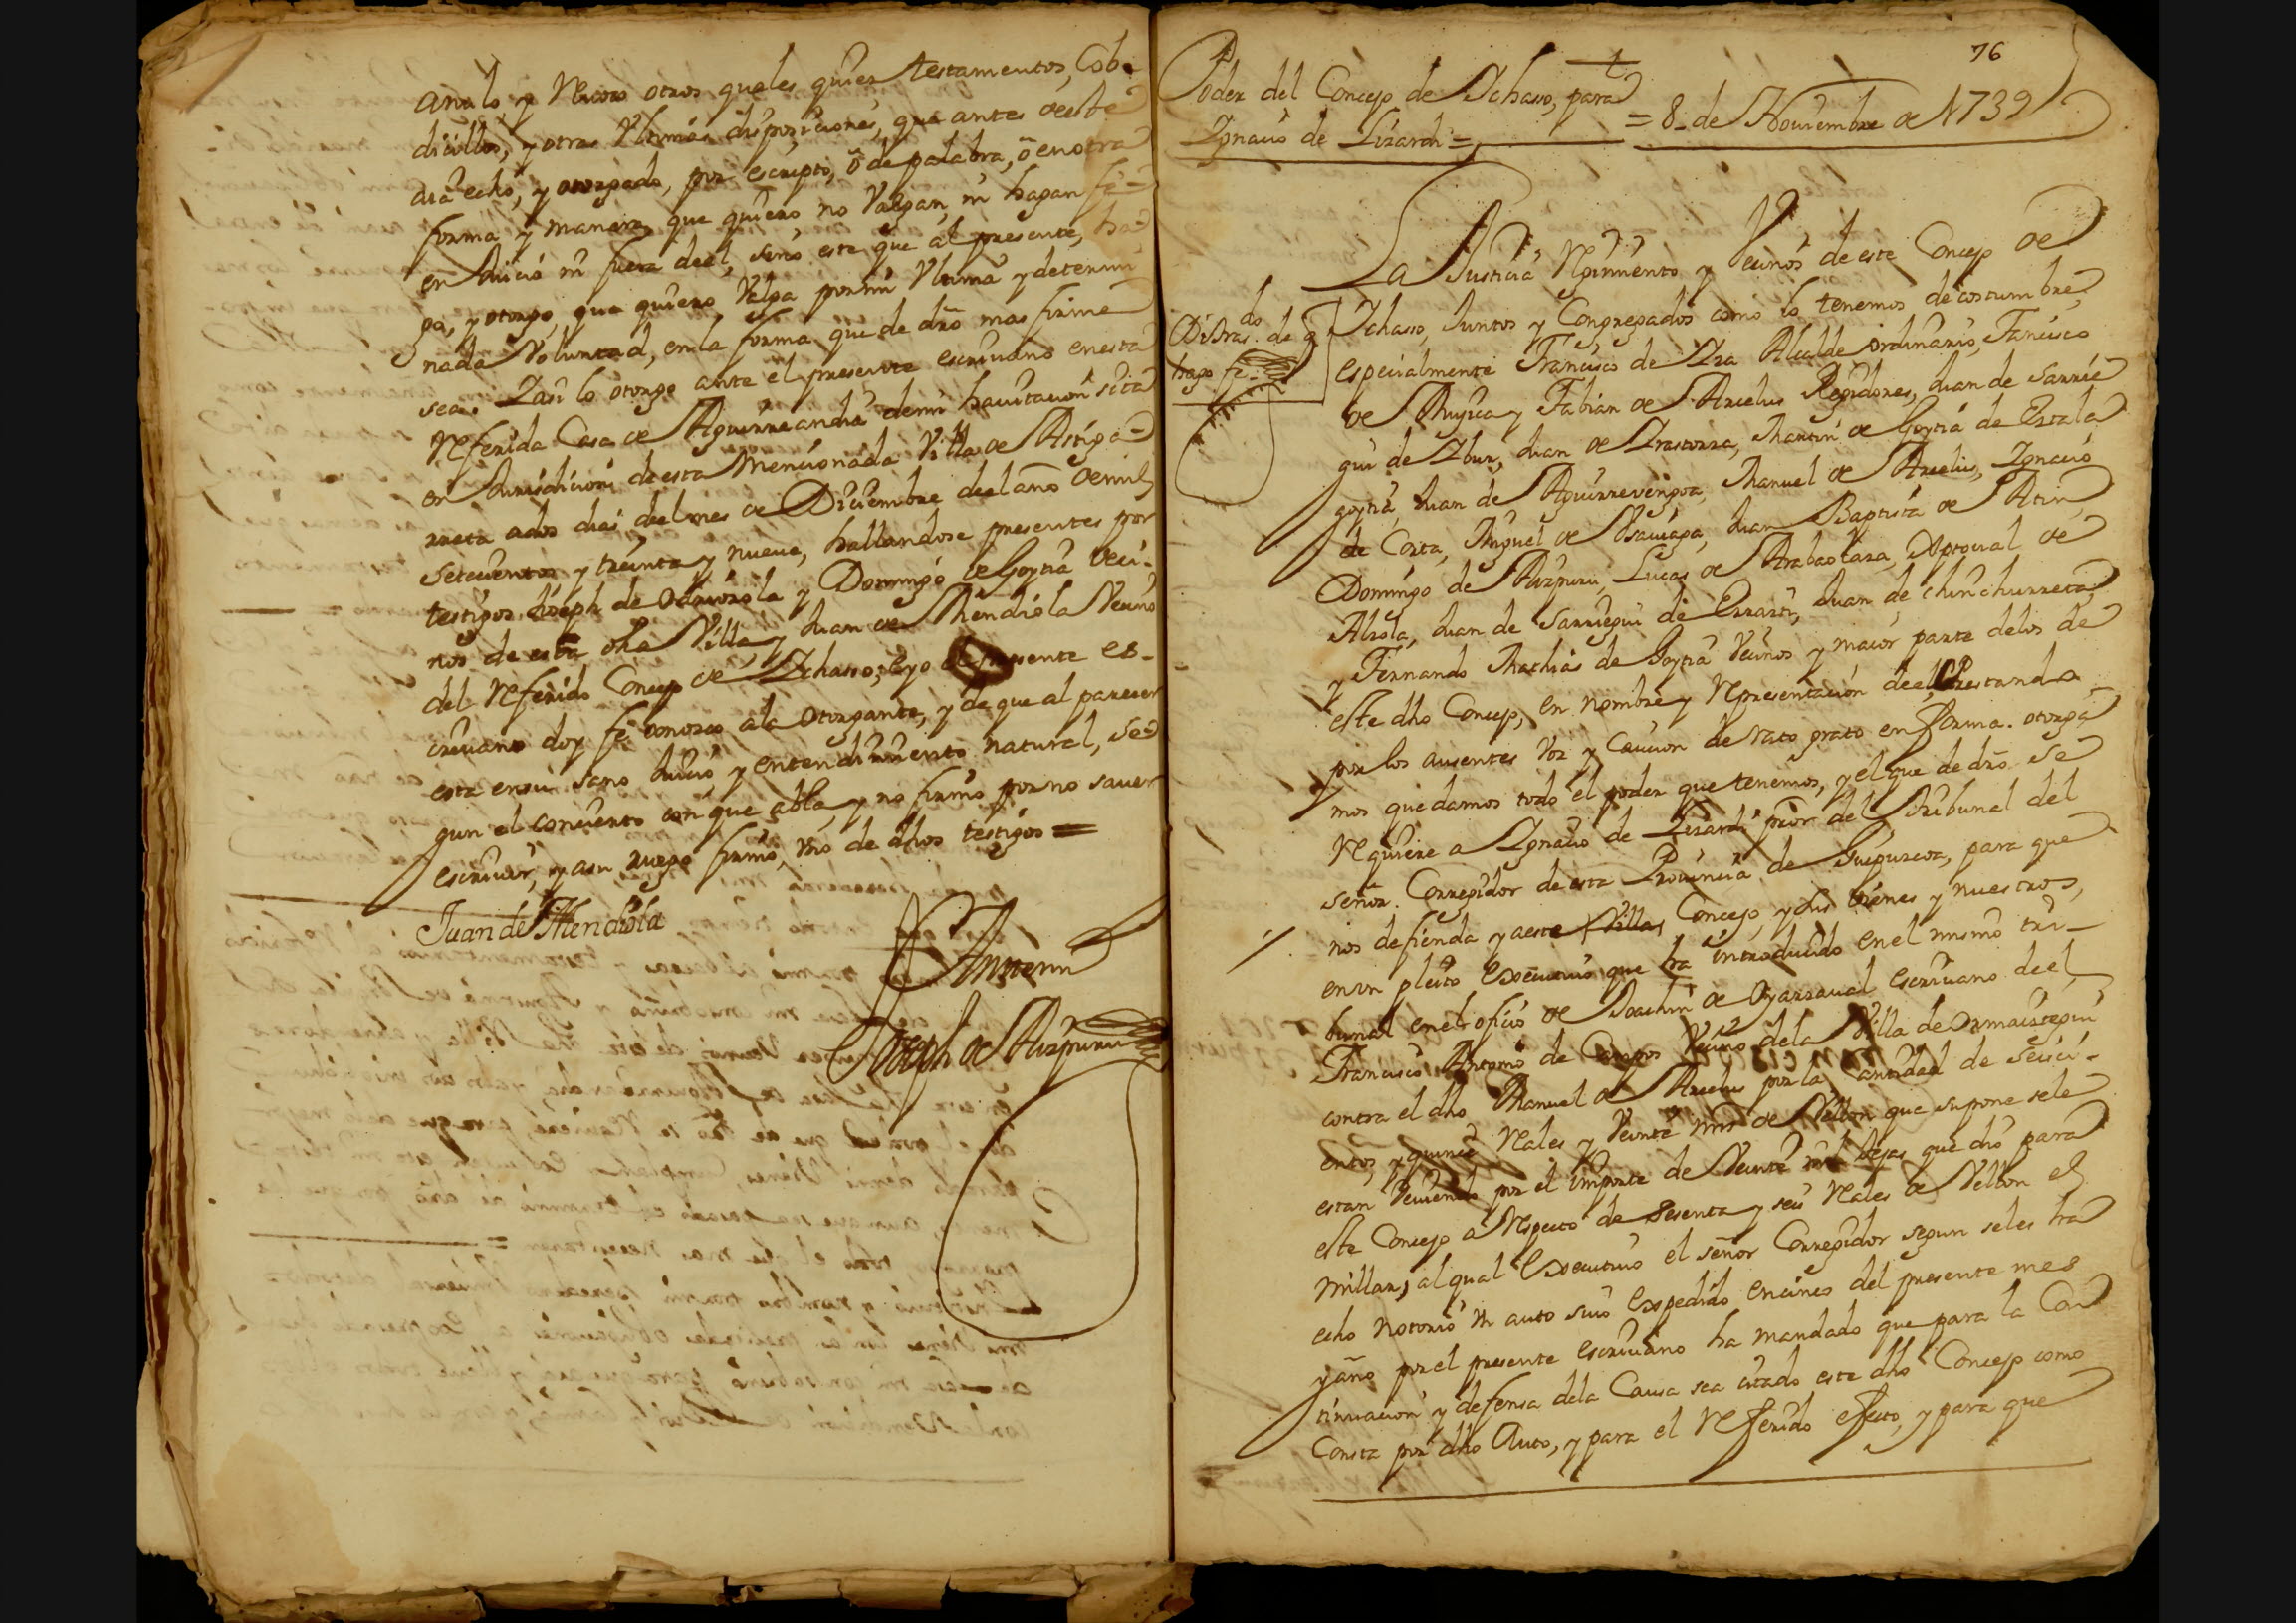 anulo, y Reuoco otros quales quier testamentos, Cobe
dicillos, y otras Vltimas disposiciones, que antes de este
aia echo, y otorgado, por escripto, ó de palabra, ó en otra
forma y manera, que quiero no Valgan, ni hagan fe
en Juicio ni fuera de el, sino este que al presente, ha
go, y otorgo, que quiero Valga por mi Vltima y determi
nada Voluntad, en la forma que de dro mas firme
sea. I asi lo otorgo ante el presente escriuano en esta
Referida Casa de Aguirreandia de mi hauitacion sita
en Jurisdicion de esta Mencionada Villa de Astiga-
rreta a dos dias del mes de Diciembre del año de mil
setecientos y treinta y nueue, hallandose presentes por
testigos Joseph de Odriozola y Domingo de Goytia Veci-
nos de esta dha Villa, y Juan de Mendiola Vecino
del Referido Concejo de Ichasso; e yo el presente es-
criuano doy fe conozco a la otorgante, y de que al parecer
esta en su sano Juicio, y entendimiento natural, se
gun el concierto con que abla, y no firmó por no sauer
escriuir, y a su ruego firmó, vno de dhos testigos =
Juan de Mendiola
Ante mi
Joseph de Aizpuru
76
Poder del Concejo de Ichasso, para
Ignacio de Lizardi =
= 8 de Nouiembre de 1739
La Justicia Regimiento y Vecinos de este Concejo de
Ichasso, Juntos y Congregados como lo tenemos de costumbre,
especialmente Francisco de Ira Alcalde ordinario, Fancisco
de Mugica y Fabian de Arcelus Regidores, Juan de Sarrie
gui de Ibur, Juan de Irastorza, Martin de Goytia de Estala
goytia, Juan de Aguirrevengoa, Manuel de Arcelus, Ignacio
de Corta, Miguel de Vsauiaga, Juan Baptista de Atin,
Domingo de Aizpuru, Lucas de Arabaolaza, Aptoual de
Alzola, Juan de Sarriegui de Errasti, Juan de chinchurreta,
y Fernando Mathias de Goytia Vecinos y maior parte de los de
este dho Concejo, en nombre y Representacion de el, Prestando
por los ausentes Voz y Caucion de rato grato en forma. otorga
mos que damos todo el poder que tenemos, y el que de dro se
Requiere a Ignacio de Lizardi Pror del Tribunal del
señor Corregidor de esta Prouincia de Guipuzcoa, para que
nos defienda y a este Villa Concejo, y sus bienes y nuestros,
en vn pleito Executiuo que ha introducido en el mismo tri-
bunal en el oficio de Joachin de Oyarzaual escriuano de el,
Francisco Antonio de Campos Vecino de la Villa de Ormaiztegui
contra el dho Manuel de Arcelus por la Cantidad de seisci-
entos, y quince Reales y Veinte mrs de Vellon que supone se le
estan deuiendo por el importe de Veinte mil tejas que dió para
este Concejo a Respecto de Sesenta y seis Reales de Vellon el
millar, al qual Executiuo el señor Corregidor segun se les ha
echo notorio vn auto suio Expedido en cinco del presente mes
y año por el presente escriuano ha mandado que para la Con
tinuacion y defensa de la Causa sea citado este dho Concejo como
Consta por dho Auto, y para el Referido efecto, y para que
Di tras.do de q
hago fe